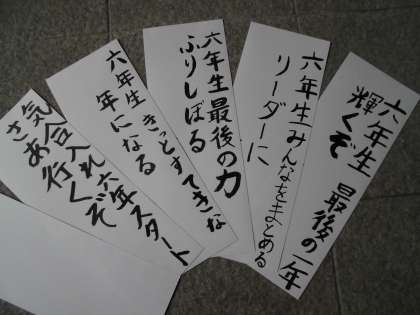 六年生
輝くぞ 最後の一年
六年生みんなをまとめる
リーダーに
六年生最後の力
ふりしぼる
六年生 きっとすてきな
年になる
気合入れ六年スタート
さあ行くぞ